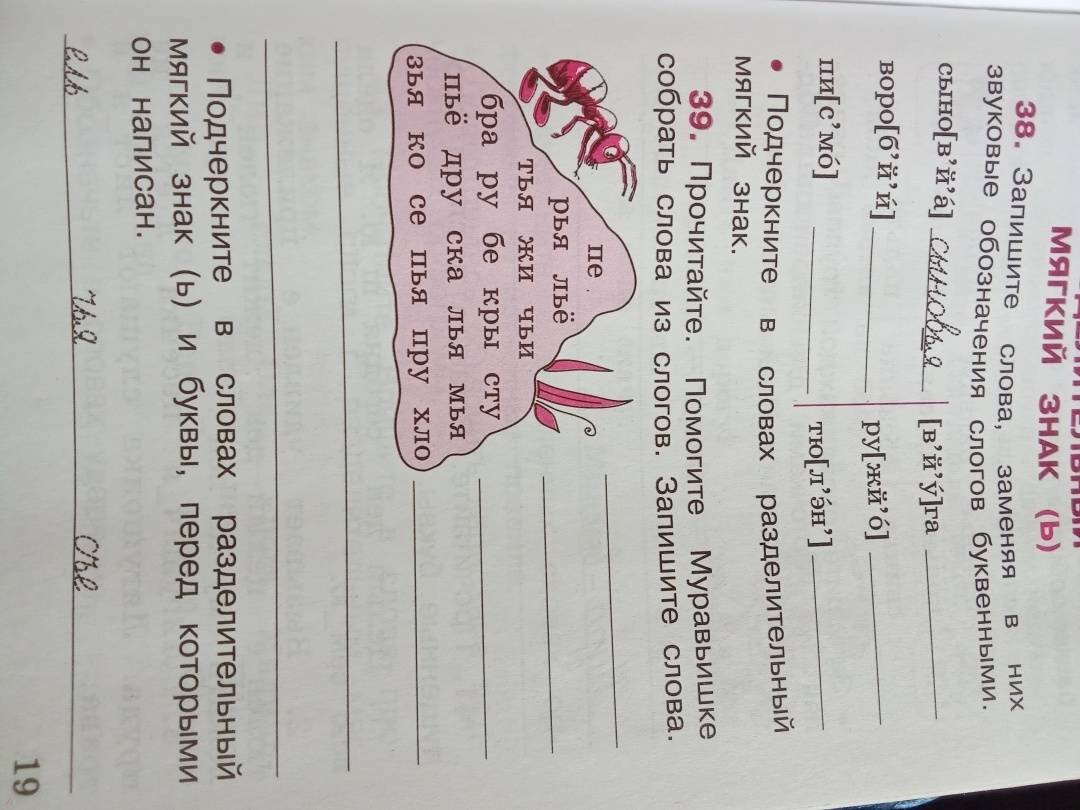 МЯГКИЙ ЗНАК (Ь)
38. Запишите слова, заменяя в них
звуковые обозначения слогов буквенными.
сыно[в’й’á] сыновья [в’й’ý]га
воро[б’й’и́] ру[жй’ó]
пи[с’мó] тю[л’э́н’]
• Подчеркните в словах разделительный
мягкий знак.
39. Прочитайте. Помогите Муравьишке
собрать слова из слогов. Запишите слова.
пе
рья льё
тья жи чьи
бра ру бе кры сту
пьё дру ска лья мья
зья ко се пья пру хло
• Подчеркните в словах разделительный
мягкий знак (ь) и буквы, перед которыми
он написан.
19